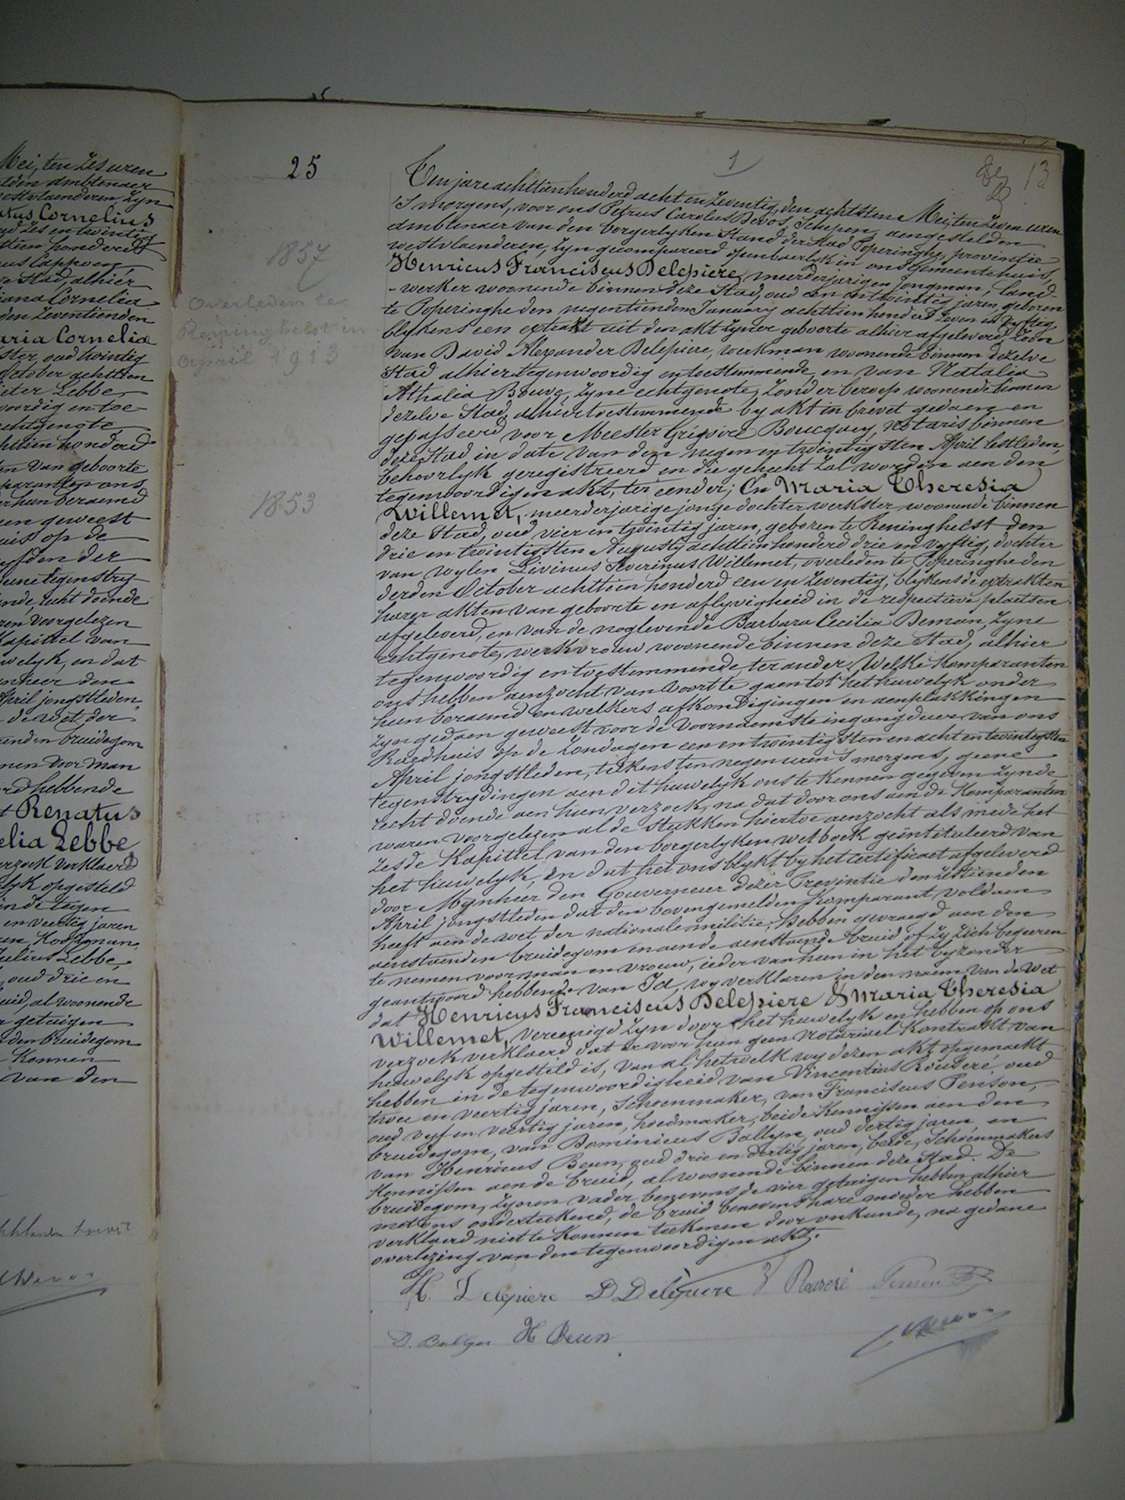 Mei, ten zes uren
atus Cornelius
ana Cornelia
den zeventienden
aria Cornelia
october achttien
Lebbe
echtgenote,
en van geboorte
een geweest
uis op de
ren voorgelezen
kapittel van
welyk, en dat
April jongstleden,
de wet der
t Renatus
elia Lebbe
lyk opgesteld
en veertig jaren
Koopman,
oud drie en
uid, al woonende
getuigen
den bruidegom
konnen
van den
25
1
13
1857
Overleden te
Reninghelst in
April 1913
1853
Ten jare achttienhonderd acht en zeventig, den achtsten Mei, ten zeven uren
's morgens, voor ons Petrus Carolus Devos, Schepen, aengestelden
ambtenaer van den borgerlyken Stand der Stad Poperinghe, provincie
westvlaenderen, zyn gecompareerd openbaerlyk in ons Gemeentehuis,
Henricus Franciscus Delepiere, meerderjarigen jongman, land-
-werker woonende binnen deze Stad, oud een en twintig jaren geboren
te Poperinghe den negentienden January achttien honderd zeven en vyftig
blykens een extrakt uit den akt zyner geboorte alhier afgeleverd, zoon
van David Alexander Delepiere, werkman woonende binnen dezelve
Stad alhier tegenwoordig en toestemmende, en van Natalia
Athalia Bouwe, zyne echtgenote, zonder beroep woonende binnen
dezelve Stad, alhier toestemmende by akt in brevet gedaen en
gepasseerd voor Meester Grégoire Boucquey, Notaris binnen
deze Stad in date van den negen en twintigsten April lestleden,
behoorlyk geregistreerd en die gehecht zal worden aen den
tegenwoordigen akt, ter eender; En Maria Theresia
Willemet, meerderjarige jonge dochter werkster woonende binnen
deze Stad, oud vier en twintig jaren, geboren te Reninghelst den
drie en twintigsten Augusty achttienhonderd drie en vyftig, dochter
van wylen Livinus Severinus Willemet, overleden te Poperinghe den
derden October achttien honderd een en zeventig, blykens de extrakten
harer akten van geboorte en aflyvigheid in de respectieve plaetsen
afgeleverd, en van de noglevende Barbara Cecilia Deman, zyne
echtgenote, werkvrouw woonende binnen deze Stad, alhier
tegenwoordig en toestemmende ter ander; Welke komparanten
ons hebben aenzocht van voort te gaen tot het huwelyk onder
hun beraemd en welkers afkondigingen en aenplakkingen
zyn gedaen geweest voor de voornaemste ingangdeure van ons
Raedhuis op de zondagen een en twintigsten en acht en twintigsten
April jongstleden, telkens ten negen uren 's morgens, geene
tegenstrydingen aen dit huwelyk ons te kennen gegeven zynde
recht doende aen hun verzoek, na dat door ons aen de komparanten
waren voorgelezen al de stukken hiertoe aenzocht als mede het
zesde Kapittel van den borgerlyken wetboek geïntituleerd van
het huwelyk, en dat het ons blykt by het certificaet afgeleverd
door Mynheer den Gouverneur dezer Provintie den zestienden
April jongstleden dat den bovengemelden komparant voldaen
heeft aen de wet der nationale militie; Hebben gevraegd aen den
aenstaenden bruidegom en aen de aenstaende bruid of zy zich begeeren
te nemen voor man en vrouw, ieder van hun in het byzonder
geantwoord hebbende van Ja, wy verklaren in den naem van de Wet
dat Henricus Franciscus Delepiere & Maria Theresia
Willemet, vereenigd zyn door het huwelyk en hebben op ons
verzoek verklaerd dat er voor hun geen Notarieel kontrakt van
huwelyk opgesteld is, van al hetwelk wy dezen akt opgemaekt
hebben in de tegenwoordigheid van Vincentius Rouseré, oud
twee en veertig jaren, Schoenmaker, van Franciscus Penson,
oud vyf en veertig jaren, hoedmaker, beide kennissen aen den
bruidegom, van Dominicus Ballyn, oud dertig jaren, en
van Henricus Beun, oud drie en dertig jaren, beide Schoenmakers
kennissen aen de bruid, al woonende binnen deze Stad. De
bruidegom, zynen vader benevens de vier getuigen hebben alhier
met ons onderteekend, de bruid benevens hare moeder hebben
verklaerd niet te konnen teekenen door onkunde, na gedane
overlezing van den tegenwoordigen akt.
H. Delepiere D Delepiere V Rouseré Penson F
D. Ballyn H Beun